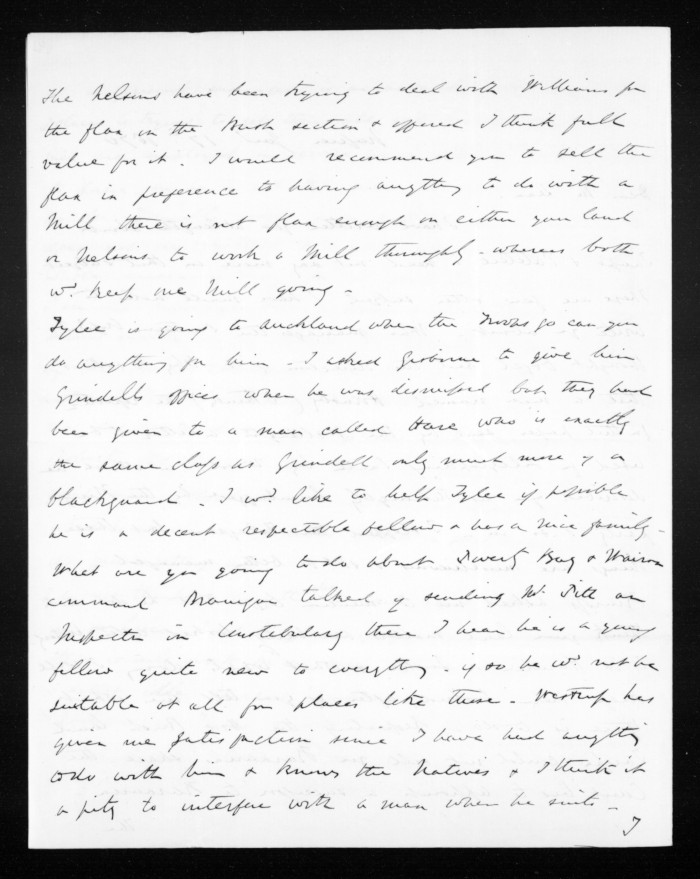 The Nelsons have been trying to deal with Williams for
the flax on the Bush section & offered I think full
value for it - I would recommend you to sell the
flax in preference to having anything to do with a
Mill there is not flax enough on either your land
or Nelsons to work a Mill thoroughly - whereas both
wd. keep one Mill going -
Tylee is going to Auckland when the Troops go can you
do anything for him - I asked to give him
Grindells offices when he was dismissed but they had
been given to a man called Hare who is exactly
the same class as Grindell only much more of a
blackguard - I wd. like to help Tylee if possible
he is a decent respectable fellow & has a nice family -
What are you going to do about Poverty Bay & Wairoa
command Branigan talked of sending Mr. Pitt as
Inspector in Constabulary there I hear he is a young
fellow quite new to everything - if so he wd. not be
suitable at all for places like these - Westrup has
given me satisfaction since I have had anything
to do with him & knows the Natives & I think it
a pity to interfere with a man when he suits -
I